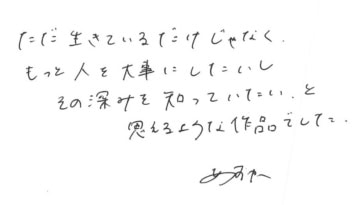 ただ生きているだけじゃなく、
もっと人を大事にしたいし
その深みを知っていたい、と
思えるような作品でした。
あすか